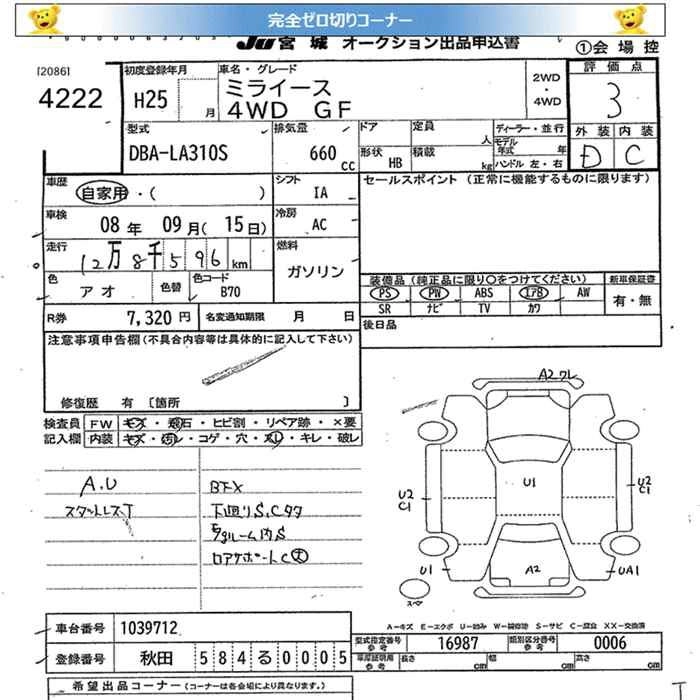 完全ゼロ切りコーナー
JU宮城 オークション出品申込書
①会場控
[2086]
4222
初度登録年月
H25 月
車名・グレード
ミライース
4WD GF
2WD
・
4WD
評価点
3
外装 内装
D C
型式
DBA-LA310S
排気量
660 cc
ドア
定員
人
形状 HB
積載
kg
ディーラー・並行
モデル年式 年
ハンドル 左・右
車歴
自家用・( )
シフト
IA
セールスポイント (正常に機能するものに限ります)
車検
08年 09月( 15日)
冷房
AC
走行
12万8千596km
燃料
ガソリン
色
アオ
色替
色コード
B70
装備品(純正品に限り○をつけてください)
新車保証書
PS PW ABS エアB AW
SR ナビ TV カワ
有・無
R券 7,320円
名変通知期限 月 日
後日品
注意事項申告欄(不具合内容等は具体的に記入して下さい)
修復歴 有 [箇所 ]
検査員 FW キズ・飛石・ヒビ割・リペア跡・×要
記入欄 内装 キズ・汚レ・コゲ・穴・スレ・キレ・破レ
A.U
スタットレスT
下廻りS.Cタタ
A2ワレ
U1
U2
C1
U2
C1
U1
A2
UA1
スペア
A-キズ E-エクボ U-凹み W-補修跡 S-サビ C-腐食 XX-交換済
車台番号 1039712
登録番号 秋田 584る0005
型式指定番号 参考 16987
類別区分番号 参考 0006
車庫証明用 参考 長さ cm 幅 cm 高さ cm
希望出品コーナー(コーナーは各会場により異なります。)